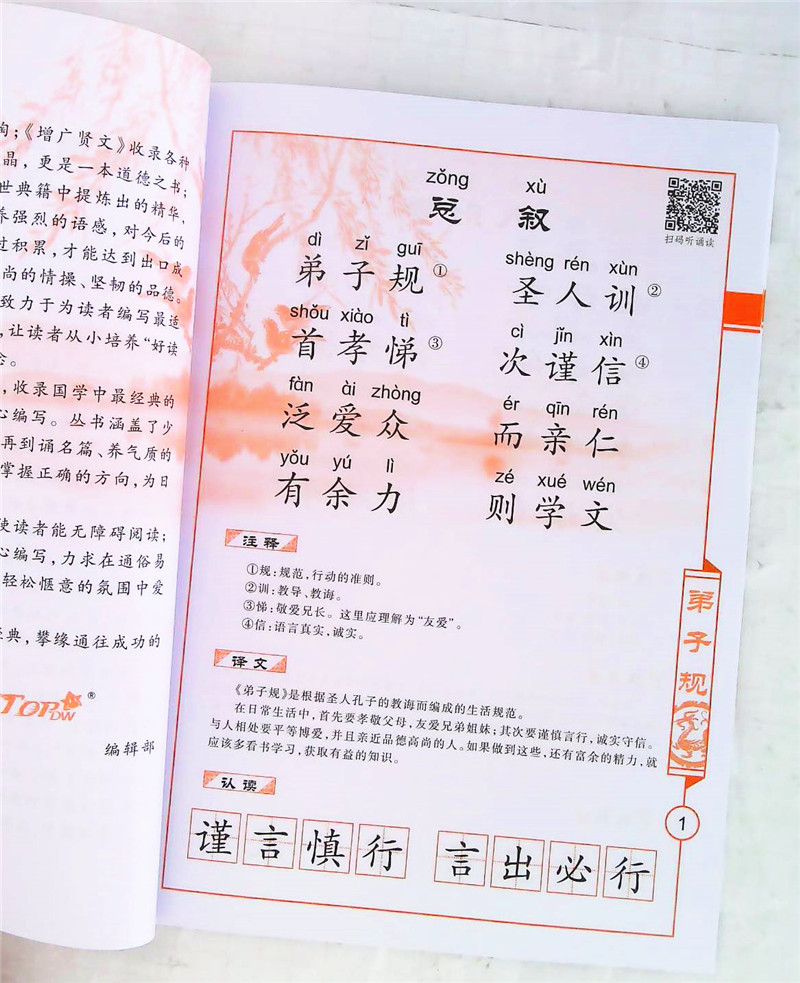 陶;《增广贤文》收录各种
晶，更是一本道德之书;
世典籍中提炼出的精华,
养强烈的语感，对今后的
过积累，才能达到出口成
尚的情操、坚韧的品德。
致力于为读者编写最适
,让读者从小培养“好读
念。
,收录国学中最经典的
心编写。丛书涵盖了少
再到诵名篇、养气质的
掌握正确的方向,为日
使读者能无障碍阅读;
心编写,力求在通俗易
轻松惬意的氛围中爱
经典,攀缘通往成功的
TOPDW®
编辑部
zǒng xù
总 叙
扫码听诵读
dì zǐ guī shèng rén xùn
弟子规① 圣人训②
shǒu xiào tì cì jǐn xìn
首孝悌③ 次谨信④
fàn ài zhòng ér qīn rén
泛爱众 而亲仁
yǒu yú lì zé xué wén
有余力 则学文
注释
①规:规范,行动的准则。
②训:教导、教诲。
③悌:敬爱兄长。这里应理解为“友爱”。
④信:语言真实,诚实。
译文
《弟子规》是根据圣人孔子的教诲而编成的生活规范。
在日常生活中,首先要孝敬父母,友爱兄弟姐妹;其次要谨慎言行,诚实守信。
与人相处要平等博爱,并且亲近品德高尚的人。如果做到这些,还有富余的精力,就
应该多看书学习,获取有益的知识。
认读
谨言慎行 言出必行
弟子规
1